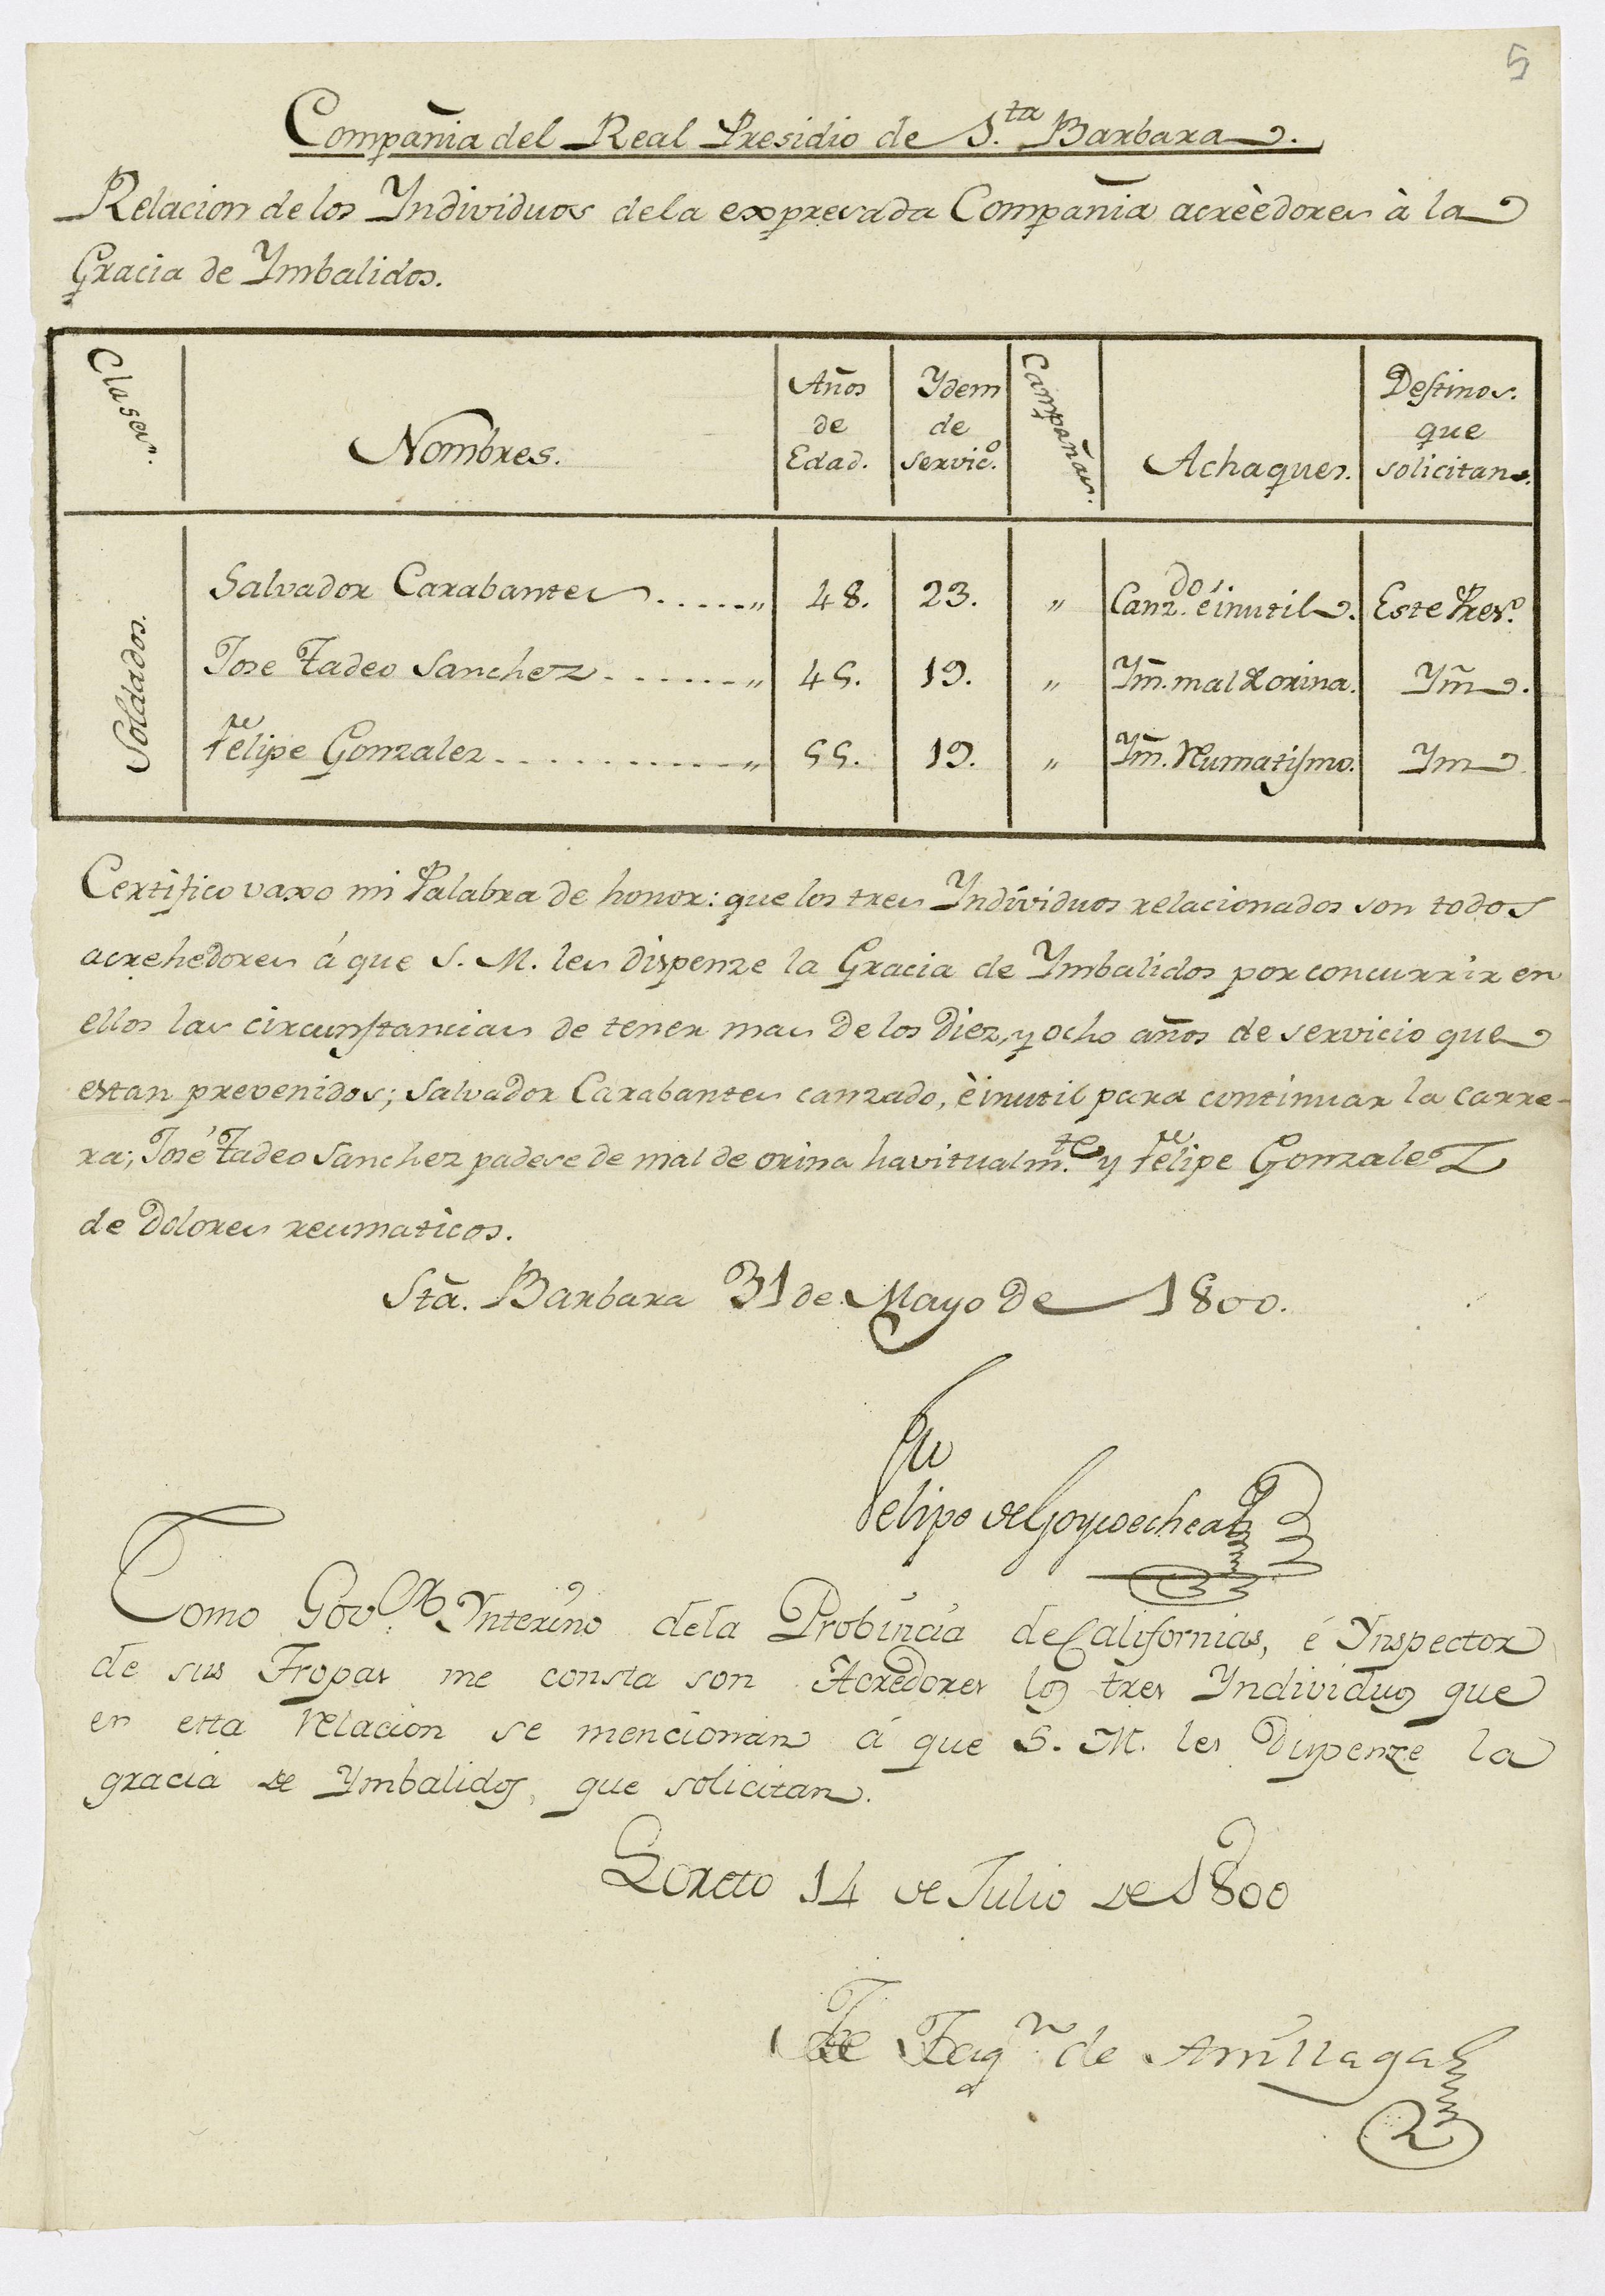 5
Compañia del Real Presidio de S.ta Barbara.
Relacion de los Yndividuos dela expresada Compañia acrèèdores à la
Gracia de Ymbalidos.
Clases. Nombres. Años de Edad. Ydem de servic.o Campañas. Achaques. Destinos. que solicitan.
Soldados.
Salvador Carabantes . . . . . „ 48. 23. „ Canz.do é inutil. Este Pres.o
Jose Tadeo Sanchez . . . . . . . „ 45. 19. „ Ym̃. mal d orina. Ym̃.
Felipe Gonzalez . . . . . . . . . . . „ 55. 19. „ Ym̃. Reumatismo. Ym
Certifico vaxo mi Palabra de honor: que los tres Yndividuos relacionados son todos
acrehedores á que S. M. les dispenze la Gracia de Ymbalidos por concurrir en
ellos las circunstancias de tener mas de los Diez, y ocho años de servicio que
estan prevenidos; Salvador Carabantes canzado, è inutil para continuar la carre-
ra; José Tadeo Sanchez padese de mal de orina havitualm.te y Felipe Gonzalez
de Dolores reumaticos.
Stã. Barbara 31 de Mayo de 1800.
Felipe de Goycoechea
Como Gov.or Ynterino dela Probincia de Californias, é Ynspector
de sus Tropas me consta son Acredores los tres Yndividuos que
en esta Relacion se mencionan á que S. M. les Dispenze la
gracia de Ymbalidos, que solicitan.
Loreto 14 de Julio de 1800
Jse Joaq.n de Arrillaga